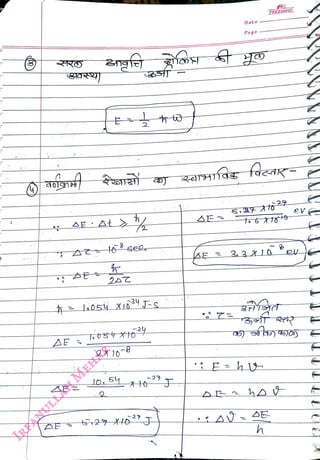 Date
Page
③ सरल आवृत्ति दोलित्र की मूल
अवस्था ऊर्जा -
E = 1/2 ℏ ω
④ वर्णक्रमी रेखाओं का स्वाभाविक विस्तार -
∵ ΔE · Δt ≥ ℏ/2
∵ Δτ = 10⁻⁸ sec.
∵ ΔE = ℏ/2Δτ
ℏ = 1.054 × 10⁻³⁴ J-S
ΔE = 1.054 × 10⁻³⁴ / 2×10⁻⁸
ΔE = 10.54/2 × 10⁻²⁷ J
ΔE = 5.27 × 10⁻²⁷ J
ΔE = 5.27 × 10⁻²⁷ / 1.6 × 10⁻¹⁹ eV
ΔE = 3.3 × 10⁻⁸ eV
∵ τ = उत्तेजित
ऊर्जा स्तर
का जीवनकाल
∵ E = hν
ΔE = hΔν
∴ Δν = ΔE/h
IRFANULLAH MEHER